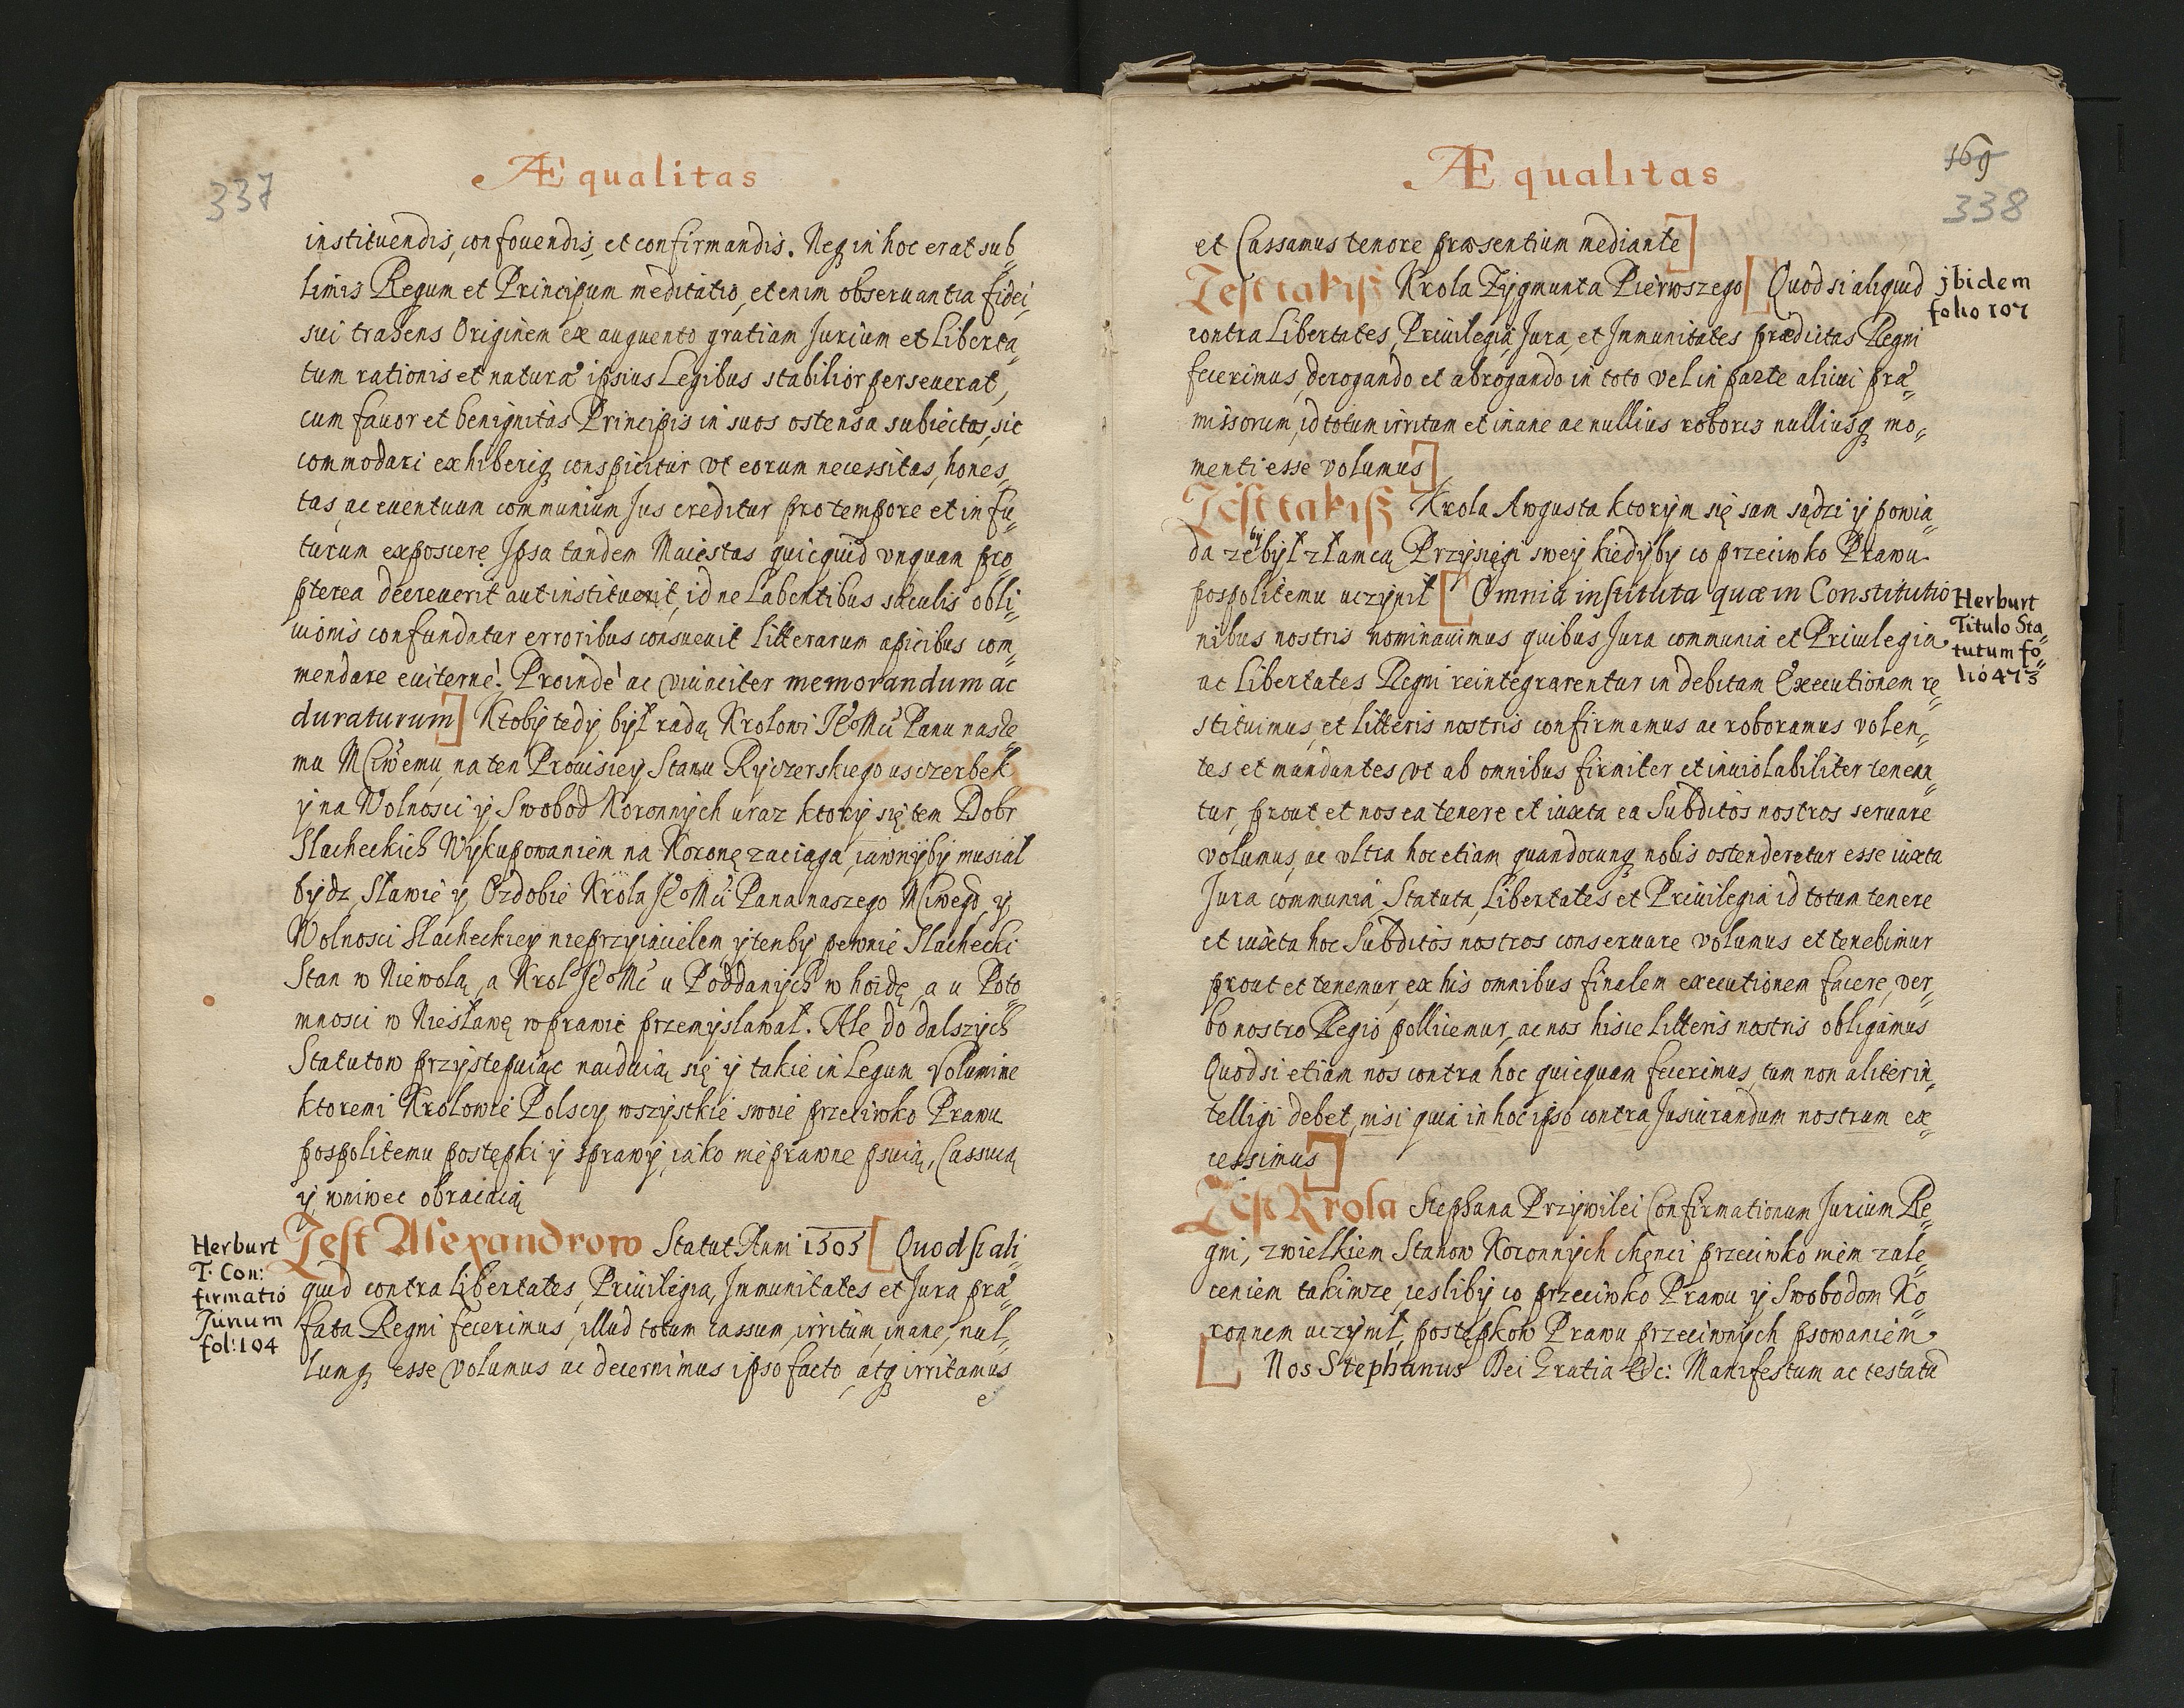 337
Æqualitas
instituendis, confouendis, et confirmandis. Neqꝫ in hoc erat sub„
limis Regum et Principum meditatio, etenim obseruantia fidei„
sui trahens Originem ex auguento gratiam Jurium et Liberta„
tum rationis et naturæ ipsius Legibus stabilior perseuerat,
cum fauor et benignitas Principis in suos ostensa subiectos, sic
commodari exhiberiqꝫ conspicitur vt eorum necessitas, hones„
tas, ac euentuum communium Jus creditur pro tempore et in fu„
turum exposcere. Ipsa tandem Maiestas quicquid vnquam pro„
pterea decreuerit aut instituerit, id ne Labentibus sæculis obli„
uionis confundatur erroribus consueuit litterarum apicibus com„
mendare euiterne. Proinde ac viuaciter memorandum ac
duraturum] Ktoby tedy był radą Krolowi Je͠o Mci Panu nasze„
mu Mciwemu, na ten Prouisiey Stanu Ryczerskiego usczerbek
y na Wolnosci y Swobod Koronnych uraz ktory się tem Dobr
Slacheckich Wykupowaniem na Koronę zaciąga, iawnyby musiał
bydz Sławie y Ozdobie Krola Je͠o Mci Pana naszego Mciwego, y
Wolnosci Slacheckiey nieprzyiacielem, y tenby pewnie Slachecki
Stan w Niewolą, a Krol Je͠o Mć u Poddanych w hoidę, a u Poto„
mnosci w Niesławę wprawić przemyslawał. Ale do dalszych
Statutow przystępuiąc naiduią się y takie in Legum Volumine
ktoremi Krolowie Polscy wszystkie swoie przeciwko Prawu
pospolitemu postępki y sprawy, iako nieprawne psuią, Cassuią
y wniwec obracaią
Herburt
T. Con:
firmatio
Jurium
fol: 104
Jest Alexandrow Statut Anni 1505 [Quod si ali„
quid contra Libertates, Priuilegia, Immunitates et Jura præ„
fata Regni fecerimus, illud totum cassum, irritum, inane, nul„
lumqꝫ esse volumus ac decernimus ipso facto, atqꝫ irritamus
e
169
338
Æqualitas
et Cassamus tenore præsentium mediante]
Jest takiſz Krola Zygmunta Pierwszego [Quod si aliquid
jbidem
folio 107
contra Libertates, Priuilegia, Jura, et Immunitates prædictas Regni
fecerimus, derogando et abrogando in toto vel in parte alicui præ„
missorum, id totum irritum et inane ac nullius roboris nulliusqꝫ mo„
menti esse volumus]
Jest takiſz Krola Awgusta ktorym się sam sądzi y powia„
da ze by był złamcą Przysięgi swey kiedyby co przeciwko Prawu
pospolitemu uczynił [Omnia instituta quæ in Constitutio„
Herburt
Titulo Sta„
tutum fo„
lio 473
nibus nostris nominauimus quibus Jura communia et Priuilegia
ac Libertates Regni reintegrarentur in debitam Executionem re„
stituimus, et litteris nostris confirmamus ac roboramus volen„
tes et mandantes vt ab omnibus firmiter et inuiolabiliter tenean„
tur, prout et nos ea tenere et iuxta ea Subditos nostros seruare
volumus, ac vltra hoc etiam quandocunqꝫ nobis ostenderetur esse iuxta
Jura communia, Statuta, Libertates et Priuilegia id totum tenere
et iuxta hoc Subditos nostros conseruare volumus et tenebimur
prout et tenemur, ex his omnibus finalem executionem facere, ver„
bo nostro Regio pollicemur, ac nos hisce litteris nostris obligamus
Quod si etiam nos contra hoc quicquam fecerimus, tum non aliter in„
telligi debet, nisi quia in hoc ipso contra Jusiurandum nostrum ex„
cessimus]
Jest Krola Stephana Przywilei Confirmationum Jurium Re„
gni, z wielkiem Stanow Koronnych chęnci przeciwko niem zale„
ceniem takimze, iesliby co przeciwko Prawu y Swobodom Ko„
ronnem uczynił, postępkow Prawu przeciwnych psowaniem
[Nos Stephanus Dei Gratia &c: Manifestum ac testatū